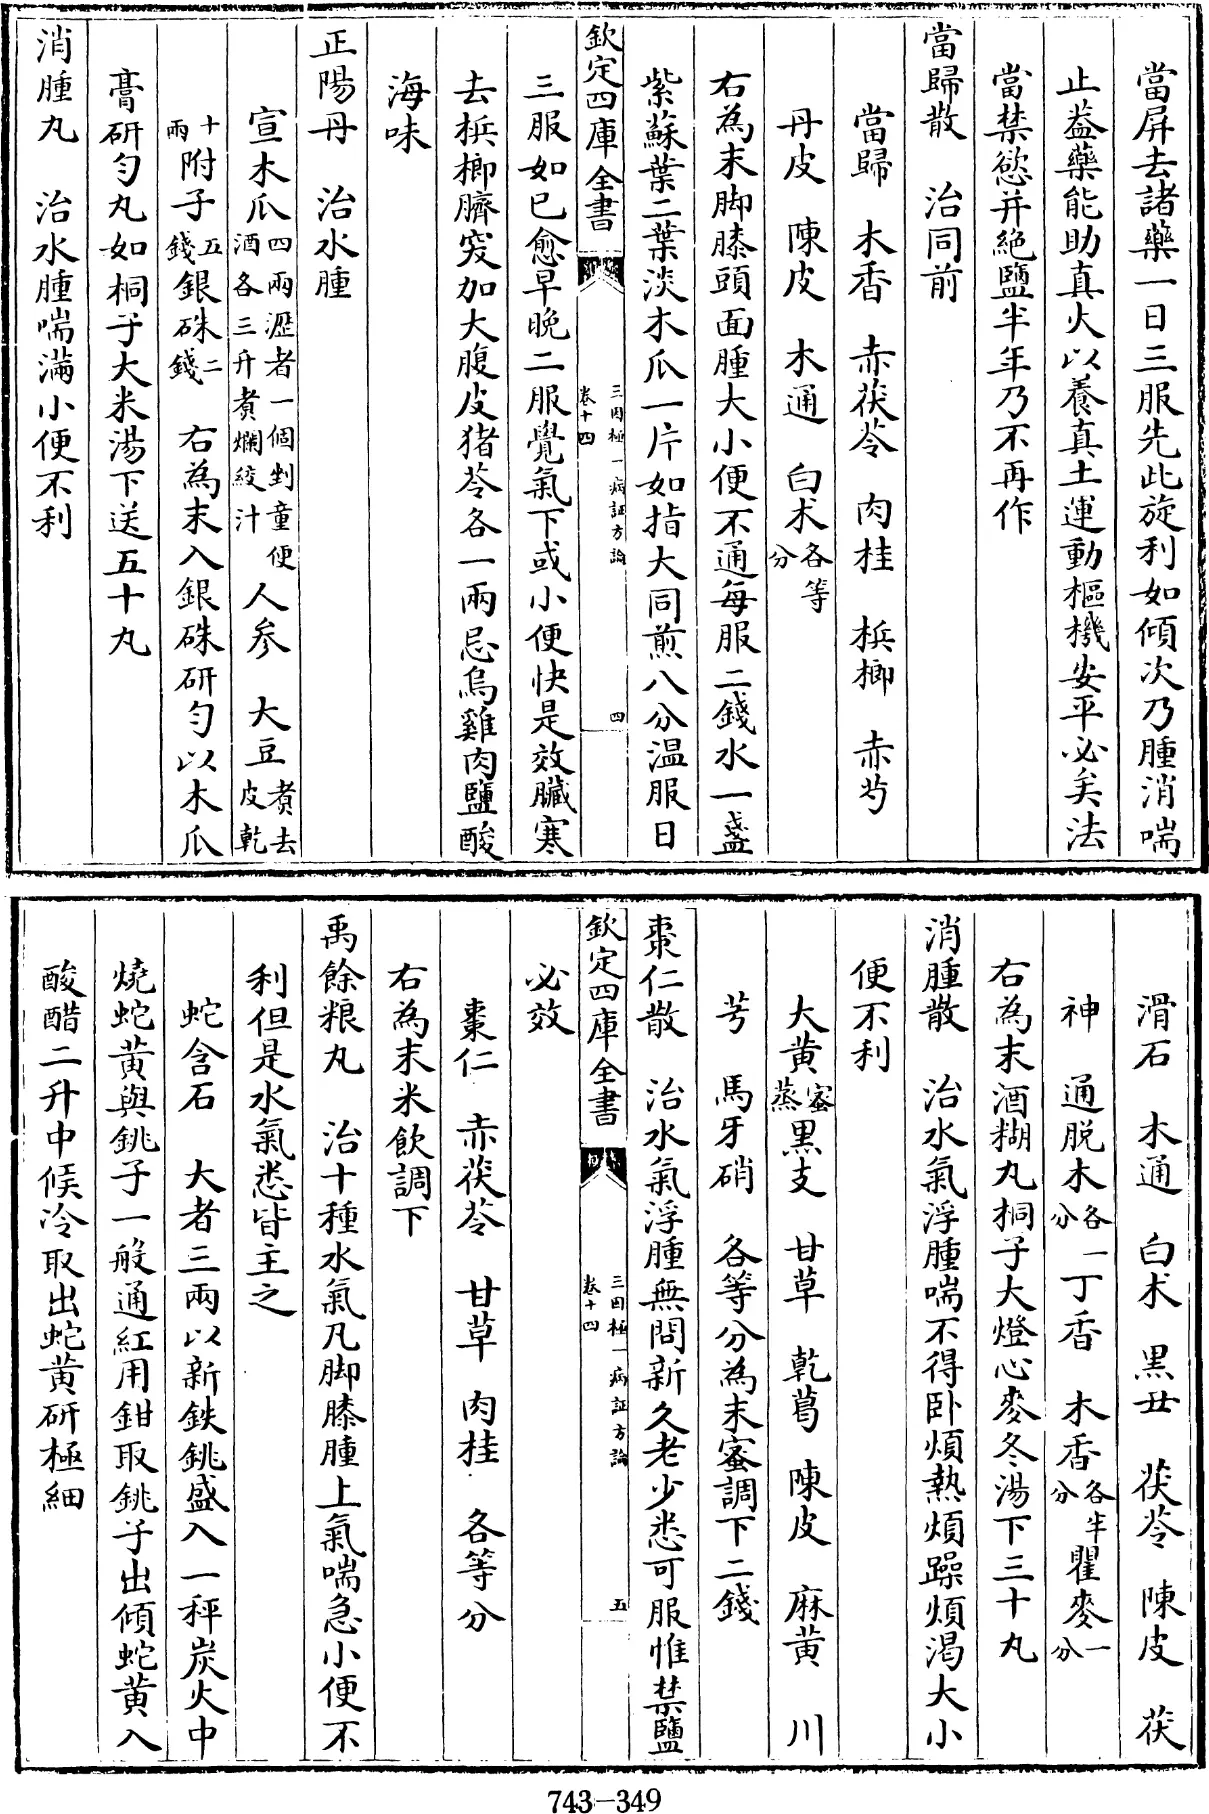 當屏去諸藥一日三服先此旋利如傾次乃腫消喘
止葢藥能助真火以養真土運動樞機安平必矣法
當禁慾并絶鹽半年乃不再作
當歸散　治同前
當歸　木香　赤茯苓　肉桂　梹榔　赤芍
丹皮　陳皮　木通　白术各等分
右為末脚膝頭面腫大小便不通每服二錢水一盞
紫蘇葉二葉淡木瓜一片如指大同煎八分温服日
欽定四庫全書
三因極一病証方論
卷十四
四
三服如已愈早晚二服覺氣下或小便快是效臓寒
去梹榔臍突加大腹皮猪苓各一兩忌烏雞肉鹽酸
海味
正陽丹　治水腫
宣木瓜四兩瀝者一個剉童便酒各三升煑爛絞汁人参　大豆煑去皮乾
十兩附子五錢銀硃二錢　右為末入銀硃研勻以木瓜
膏研勻丸如桐子大米湯下送五十丸
消腫丸　治水腫喘滿小便不利
滑石　木通　白术　黒丑　茯苓　陳皮　茯
神　通脱木各一分丁香　木香各半分瞿麥一分
右為末酒糊丸桐子大燈心麥冬湯下三十丸
消腫散　治水氣浮腫喘不得卧煩熱煩躁煩渇大小
便不利
大黄蜜蒸黒支　甘草　乾葛　陳皮　麻黄　川
芎　馬牙硝　各等分為末蜜調下二錢
棗仁散　治水氣浮腫無問新久老少悉可服惟禁鹽
欽定四庫全書
三因極一病証方論
卷十四
五
必效
棗仁　赤茯苓　甘草　肉桂　各等分
右為末米飲調下
禹餘粮丸　治十種水氣凡脚膝腫上氣喘急小便不
利但是水氣悉皆主之
蛇含石　大者三兩以新鉄銚盛入一秤炭火中
燒蛇黄與銚子一般通紅用鉗取銚子出傾蛇黄入
酸醋二升中候冷取出蛇黄研極細
743-349